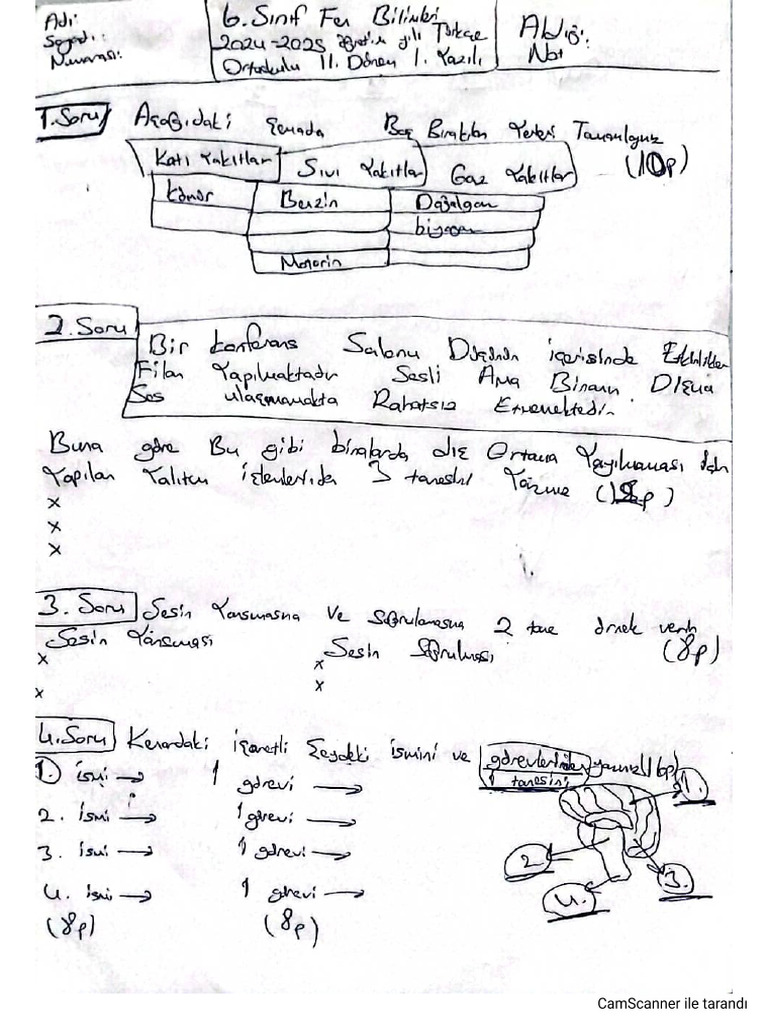 Adı:
Soyadı:
Numarası:
6. Sınıf Fen Bilimleri
2024-2025 öğretim yılı Türkçe
Ortaokulu II. Dönem 1. Yazılı
Aldığı
Not
1. Soru Aşağıdaki şemada Boş Bırakılan Yerleri Tamamlayınız (10p)
Katı Yakıtlar Sıvı Yakıtlar Gaz Yakıtlar
Kömür Benzin Doğalgaz
biyogaz
Motorin
2. Soru
Bir konferans Salonu Düğünün içerisinde Etkinlikler
Filan Yapılmaktadır Sesli Ama Binanın Dışına
Ses ulaşmamakta Rahatsız Etmemektedir.
Buna göre Bu gibi binalarda dış Ortama Yayılmaması için
Yapılan Yalıtım işlemlerinden 3 tanesini Yazınız ( p)
x
x
x
3. Soru Sesin Yansımasına ve soğrulmasına 2 tane örnek verin
Sesin Yansıması Sesin Soğrulması (8p)
x x
x x
4. Soru Kenardaki işaretli Şeydeki ismini ve görevlerinden yazınız (16p)
1 tanesini
1. ismi → 1 görevi →
2. ismi → 1 görevi →
3. ismi → 1 görevi →
4. ismi → 1 görevi →
(8p) (8p)
1.
2
3.
4.
CamScanner ile tarandı